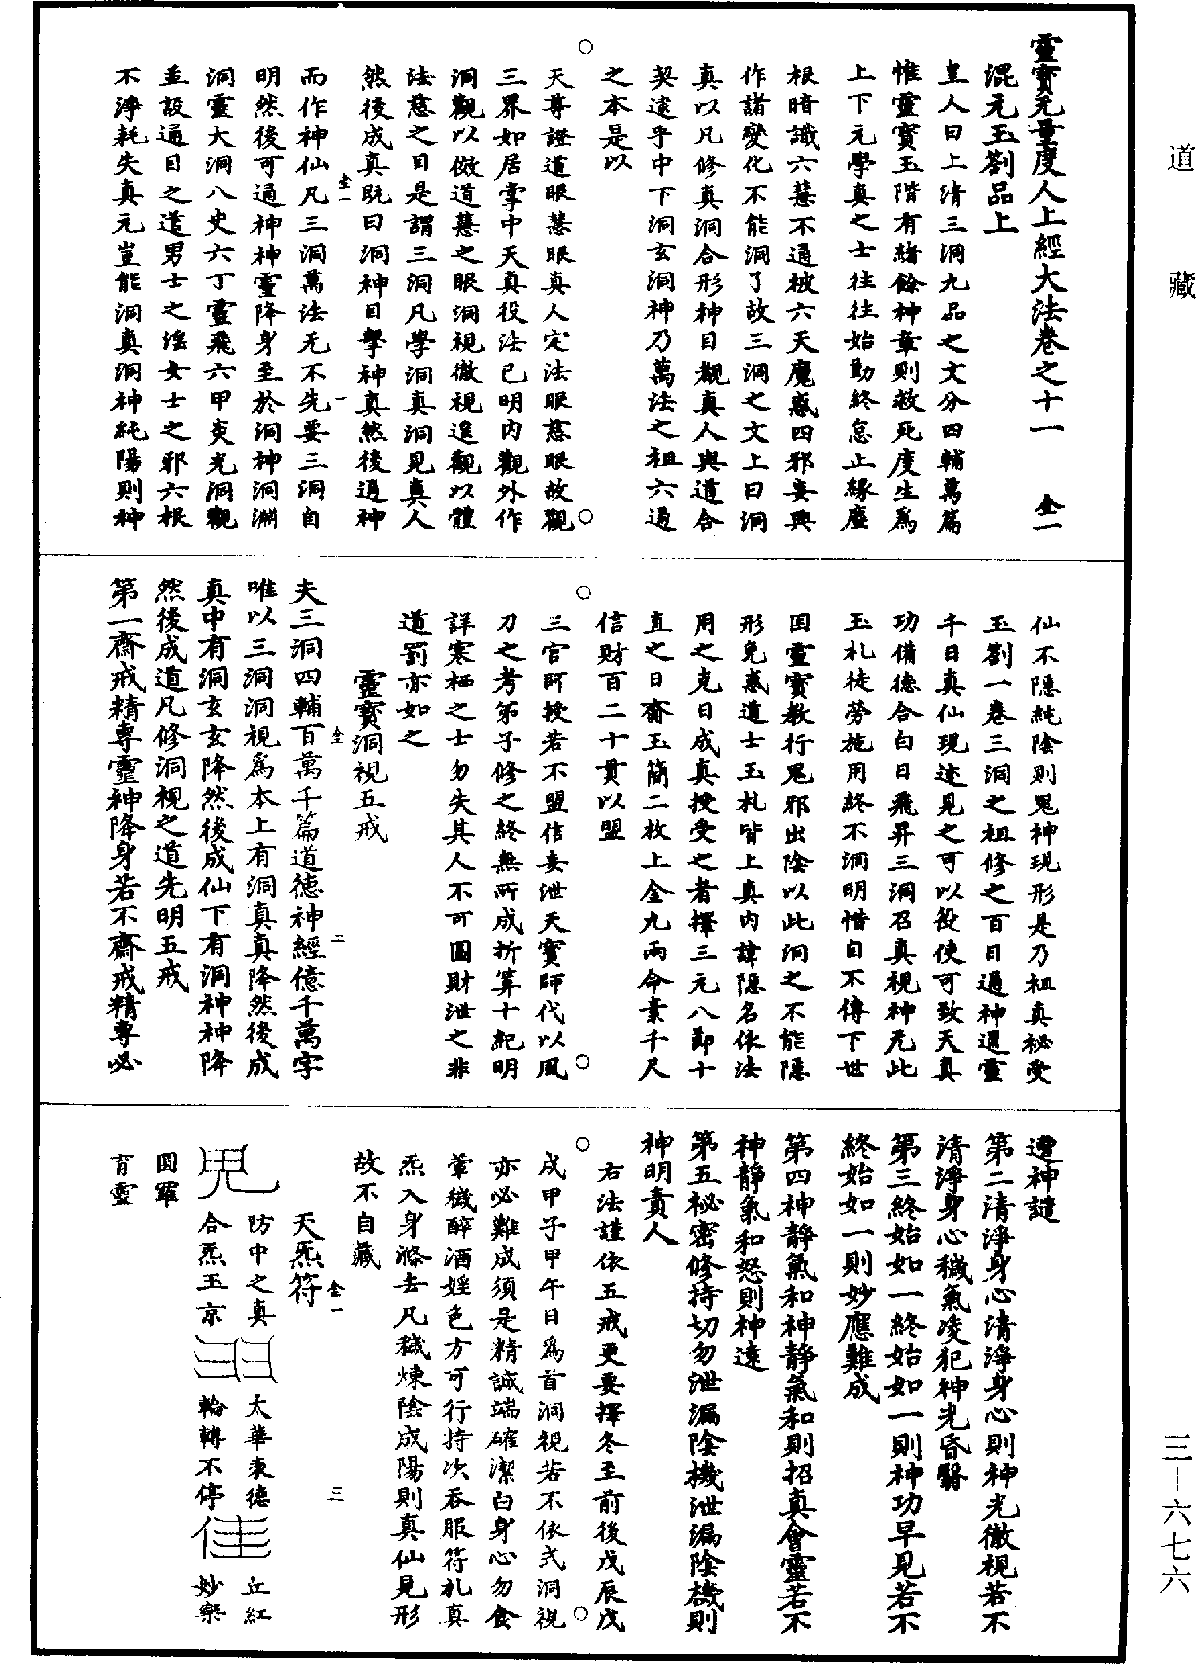 道藏
靈寶无量度人上經大法卷之十一　全一
混元玉劄品上
皇人曰上清三洞九品之文分四輔萬篇
惟靈寶玉階有緒餘神章則救死度生爲
上下元學真之士往往始勤終怠止緣塵
根暗識六慧不通被六天魔惑四邪妄興
作諸變化不能洞了故三洞之文上曰洞
真以凡修真洞合形神目觀真人與道合
契逮乎中下洞玄洞神乃萬法之祖六通
之本是以
天尊證道眼慧眼真人定法眼慈眼故觀
三界如居掌中天真役法已明內觀外作
洞觀以倣道慧之眼洞視徹視進觀以體
法慈之目是謂三洞凡學洞真洞見真人
然後成真既曰洞神目擊神真然後通神
全一　一
而作神仙凡三洞萬法无不先要三洞自
明然後可通神神靈降身至於洞神洞淵
洞靈大洞八史六丁靈飛六甲奕光洞觀
並設通目之道男士之淫女士之邪六根
不淨耗失真元豈能洞真洞神純陽則神
仙不隱純陰則鬼神現形是乃祖真祕受
玉劄一卷三洞之祖修之百日通神通靈
千日真仙現迹見之可以役使可致天真
功備德合白日飛昇三洞召真視神无此
玉札徒勞施用終不洞明惜自不傳下世
因靈寶教行鬼邪出陰以此洞之不能隱
形免惑道士玉札皆上真內諱隱名依法
用之克日成真授受之者擇三元八節十
直之日齋玉簡二枚上金九兩命素千尺
信財百二十貫以盟
三官師授若不盟信妄泄天寶師代以風
刀之考弟子修之終無所成折算十紀明
詳寒栖之士勿失其人不可圖財泄之非
道罰亦如之
靈寶洞視五戒
全　二
夫三洞四輔百萬千篇道德神經億千萬字
唯以三洞洞視爲本上有洞真真降然後成
真中有洞玄玄降然後成仙下有洞神神降
然後成道凡修洞視之道先明五戒
第一齋戒精專靈神降身若不齋戒精專必
遭神譴
第二清淨身心清淨身心則神光徹視若不
清淨身心穢氣凌犯神光昏翳
第三終始如一終始如一則神功早見若不
終始如一則妙應難成
第四神靜氣和神靜氣和則招真會靈若不
神靜氣和怒則神遠
第五祕密修持切勿泄漏陰機泄漏陰機則
神明責人
右法謹依五戒更要擇冬至前後戊辰戊
戌甲子甲午日爲首洞視若不依式洞視
亦必難成須是精誠端確潔白身心勿食
葷穢醉酒婬色方可行持次吞服符札真
炁入身滌去凡穢煉陰成陽則真仙見形
故不自藏
全一　三
天炁符
防中之真　太華表德　丘紅
合炁玉京　輪轉不停　妙樂
圓羅
育靈
三—六七六